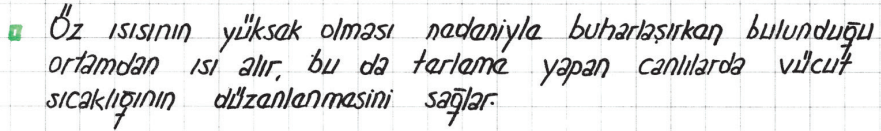 Öz ısısının yüksek olması nedeniyle buharlaşırken bulunduğu
ortamdan ısı alır, bu da terleme yapan canlılarda vücut
sıcaklığının düzenlenmesini sağlar.